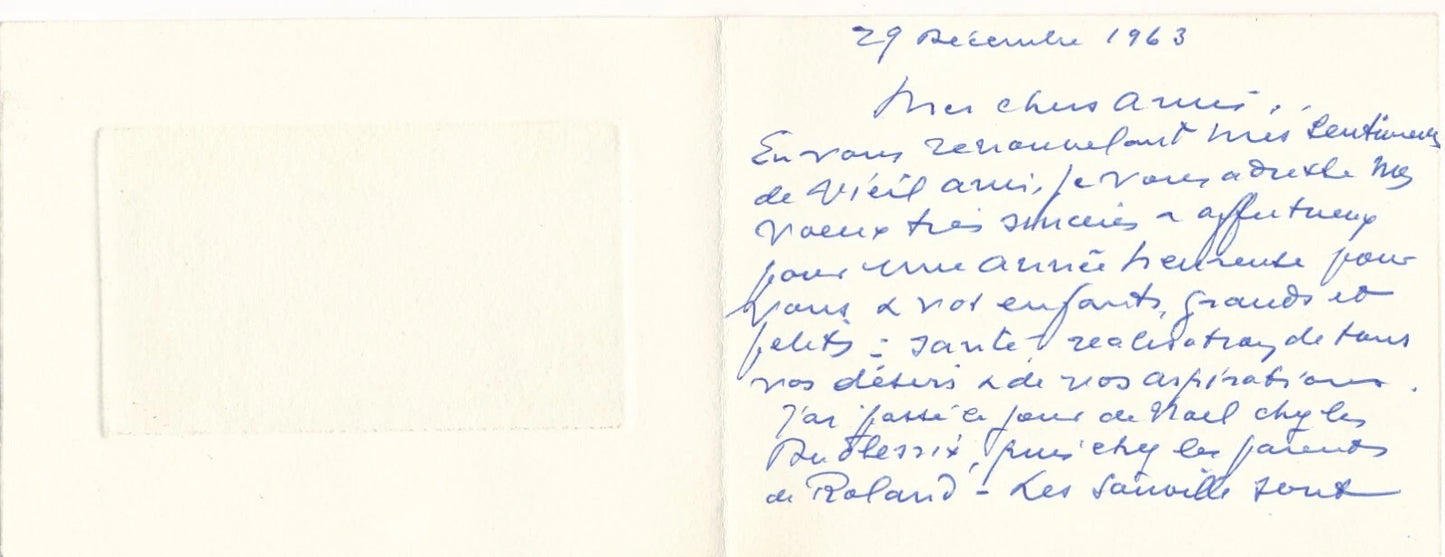 29 Décembre 1963
Mes chers amis,
En vous renouvelant mes sentiments
de vieil ami, je vous adresse mes
vœux très sincères & affectueux
pour une année heureuse pour
vous & vos enfants, grands et
petits : santé, réalisation de tous
vos désirs & de vos aspirations.
J'ai passé le jour de Noël chez les
puis chez les parents
de Roland - Les sont